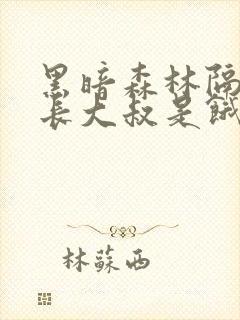 黑暗森林隔
长大叔是饿
林蘇西